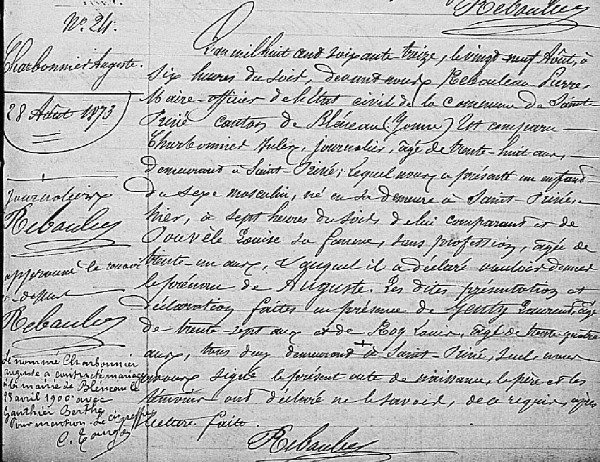 Rebouleau
N° 24.
Charbonnier Auguste.
28 Août 1873
L'an mil huit cent soixante treize, le vingt neuf Août, à
six heures du soir, devant nous Rebouleau Pierre,
Maire officier de l'état civil de la commune de Saint
Privé canton de Bléneau (Yonne) Est comparu
Charbonnier Jules, journalier, âgé de trente-huit ans,
demeurant à Saint-Privé; lequel nous a présenté un enfant
du sexe masculin, né en sa demeure à Saint-Privé,
hier, à sept heures du soir, de lui comparant et de
Louise sa femme, sans profession, âgée de
trente un ans, & auquel il a déclaré vouloir donner
le prénom de Auguste. Les dites présentation et
déclaration faites en présence de Genty Laurent, âgé
de trente sept ans et de Roy Louis, âgé de trente quatre
ans, tous deux demeurant à Saint-Privé, seul nous
avons signé le présent acte de naissance, le père et les
témoins ont déclaré ne le savoir, de ce requis, après
lecture faite.
Rebouleau
journalier
Rebouleau
approuvé le renvoi
ci dessus
Rebouleau
Le nommé Charbonnier
Auguste a contracté mariage
à la mairie de Bléneau le
28 avril 1900 avec
Gauthier Berthe
Pour mention Le Greffier